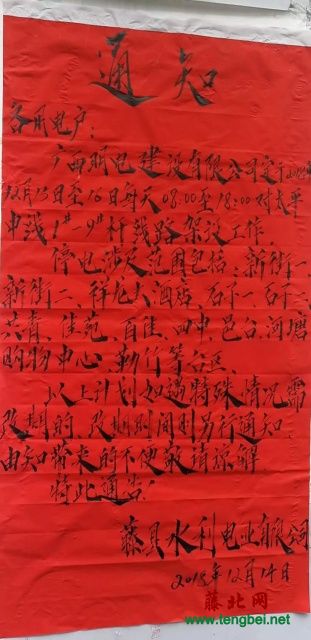 通知
各用电户:
广西明电建设有限公司定于
12月15日至16日每天08:00至18:00对太平
中线1#-9#杆线路架设工作,
停电涉及范围包括:新街一、
新街二、祥龙大酒店、石下一、石下二、
共青、佳苑、百佳、四中、邑台、河塘
购物中心、勒竹等台区。
以上计划如遇特殊情况需
改期的、改期时间则另行通知。
由知带来的不便敬请谅解
特此通告!
藤县水利电业有限公司
2018年12月14日
藤北网
www.tengbei.net